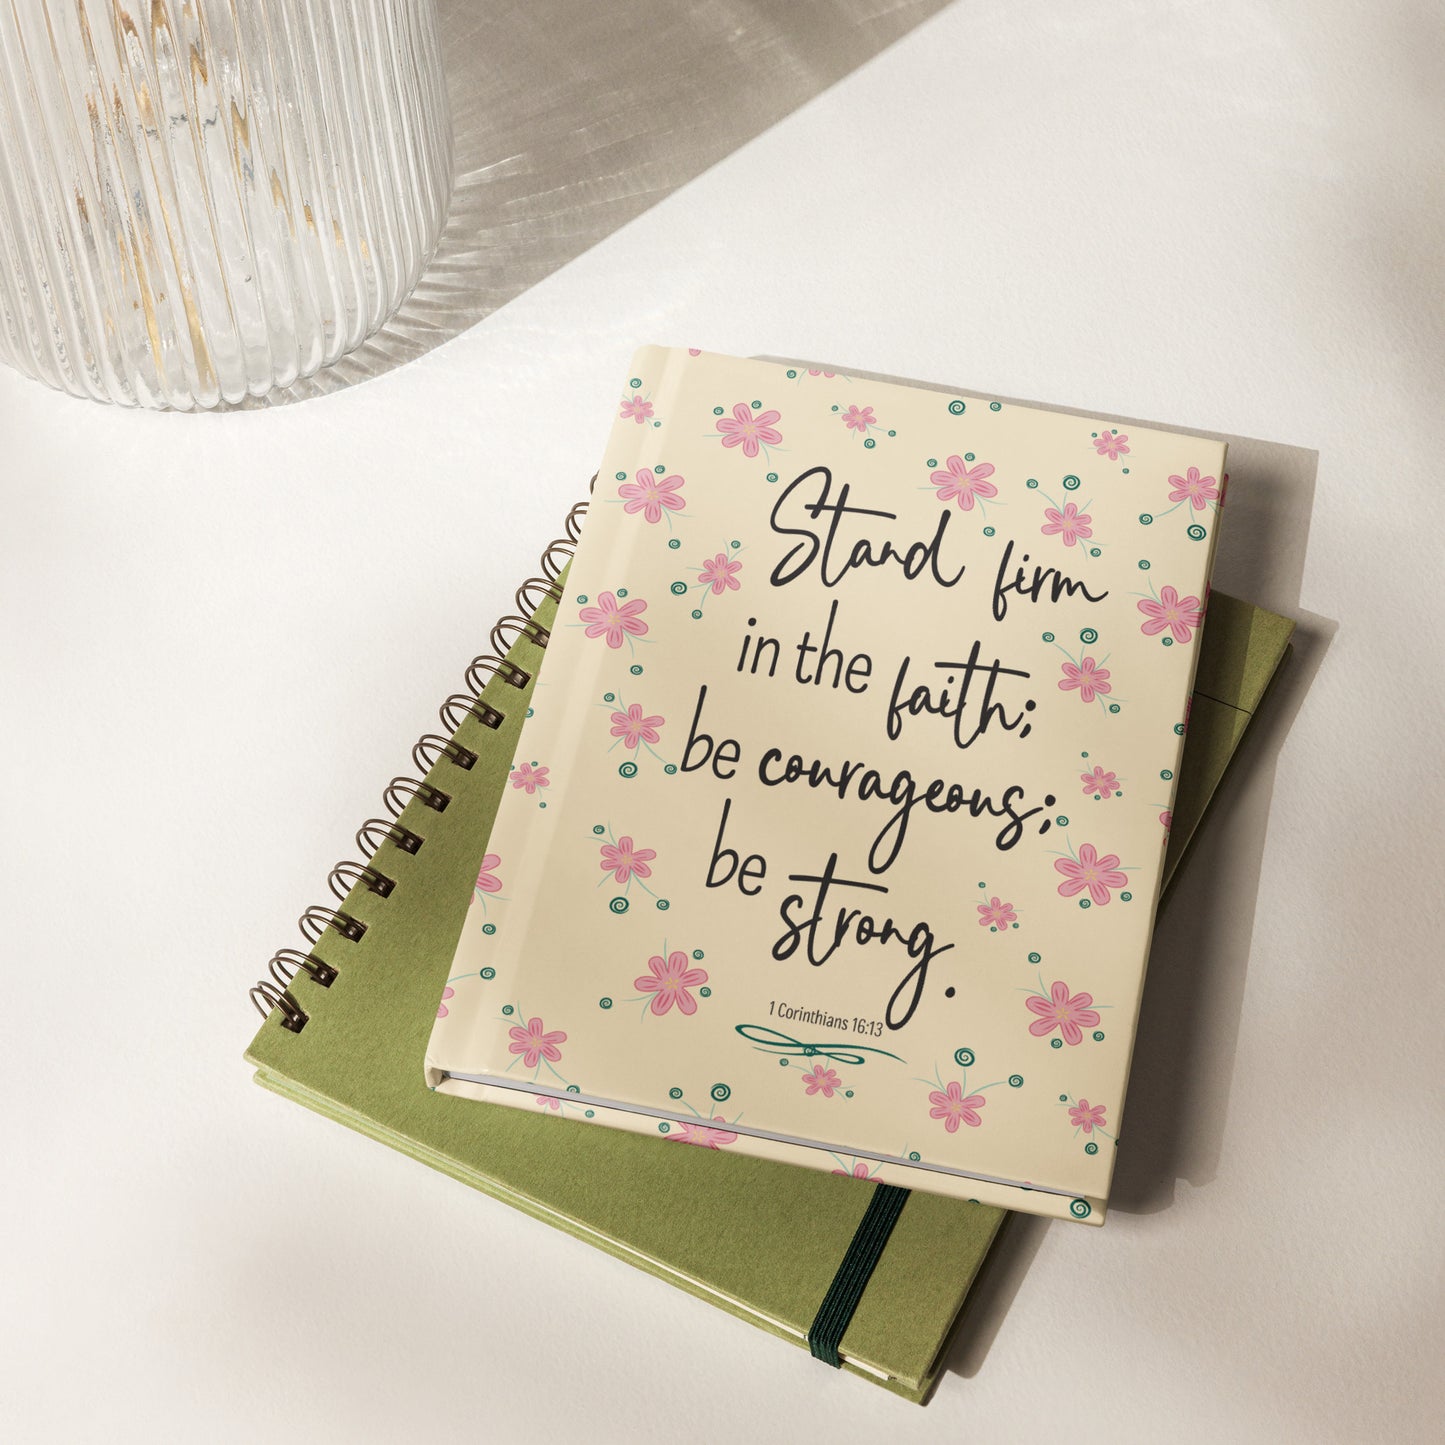 Stand firm
in the faith;
be courageous;
be strong.
1 Corinthians 16:13